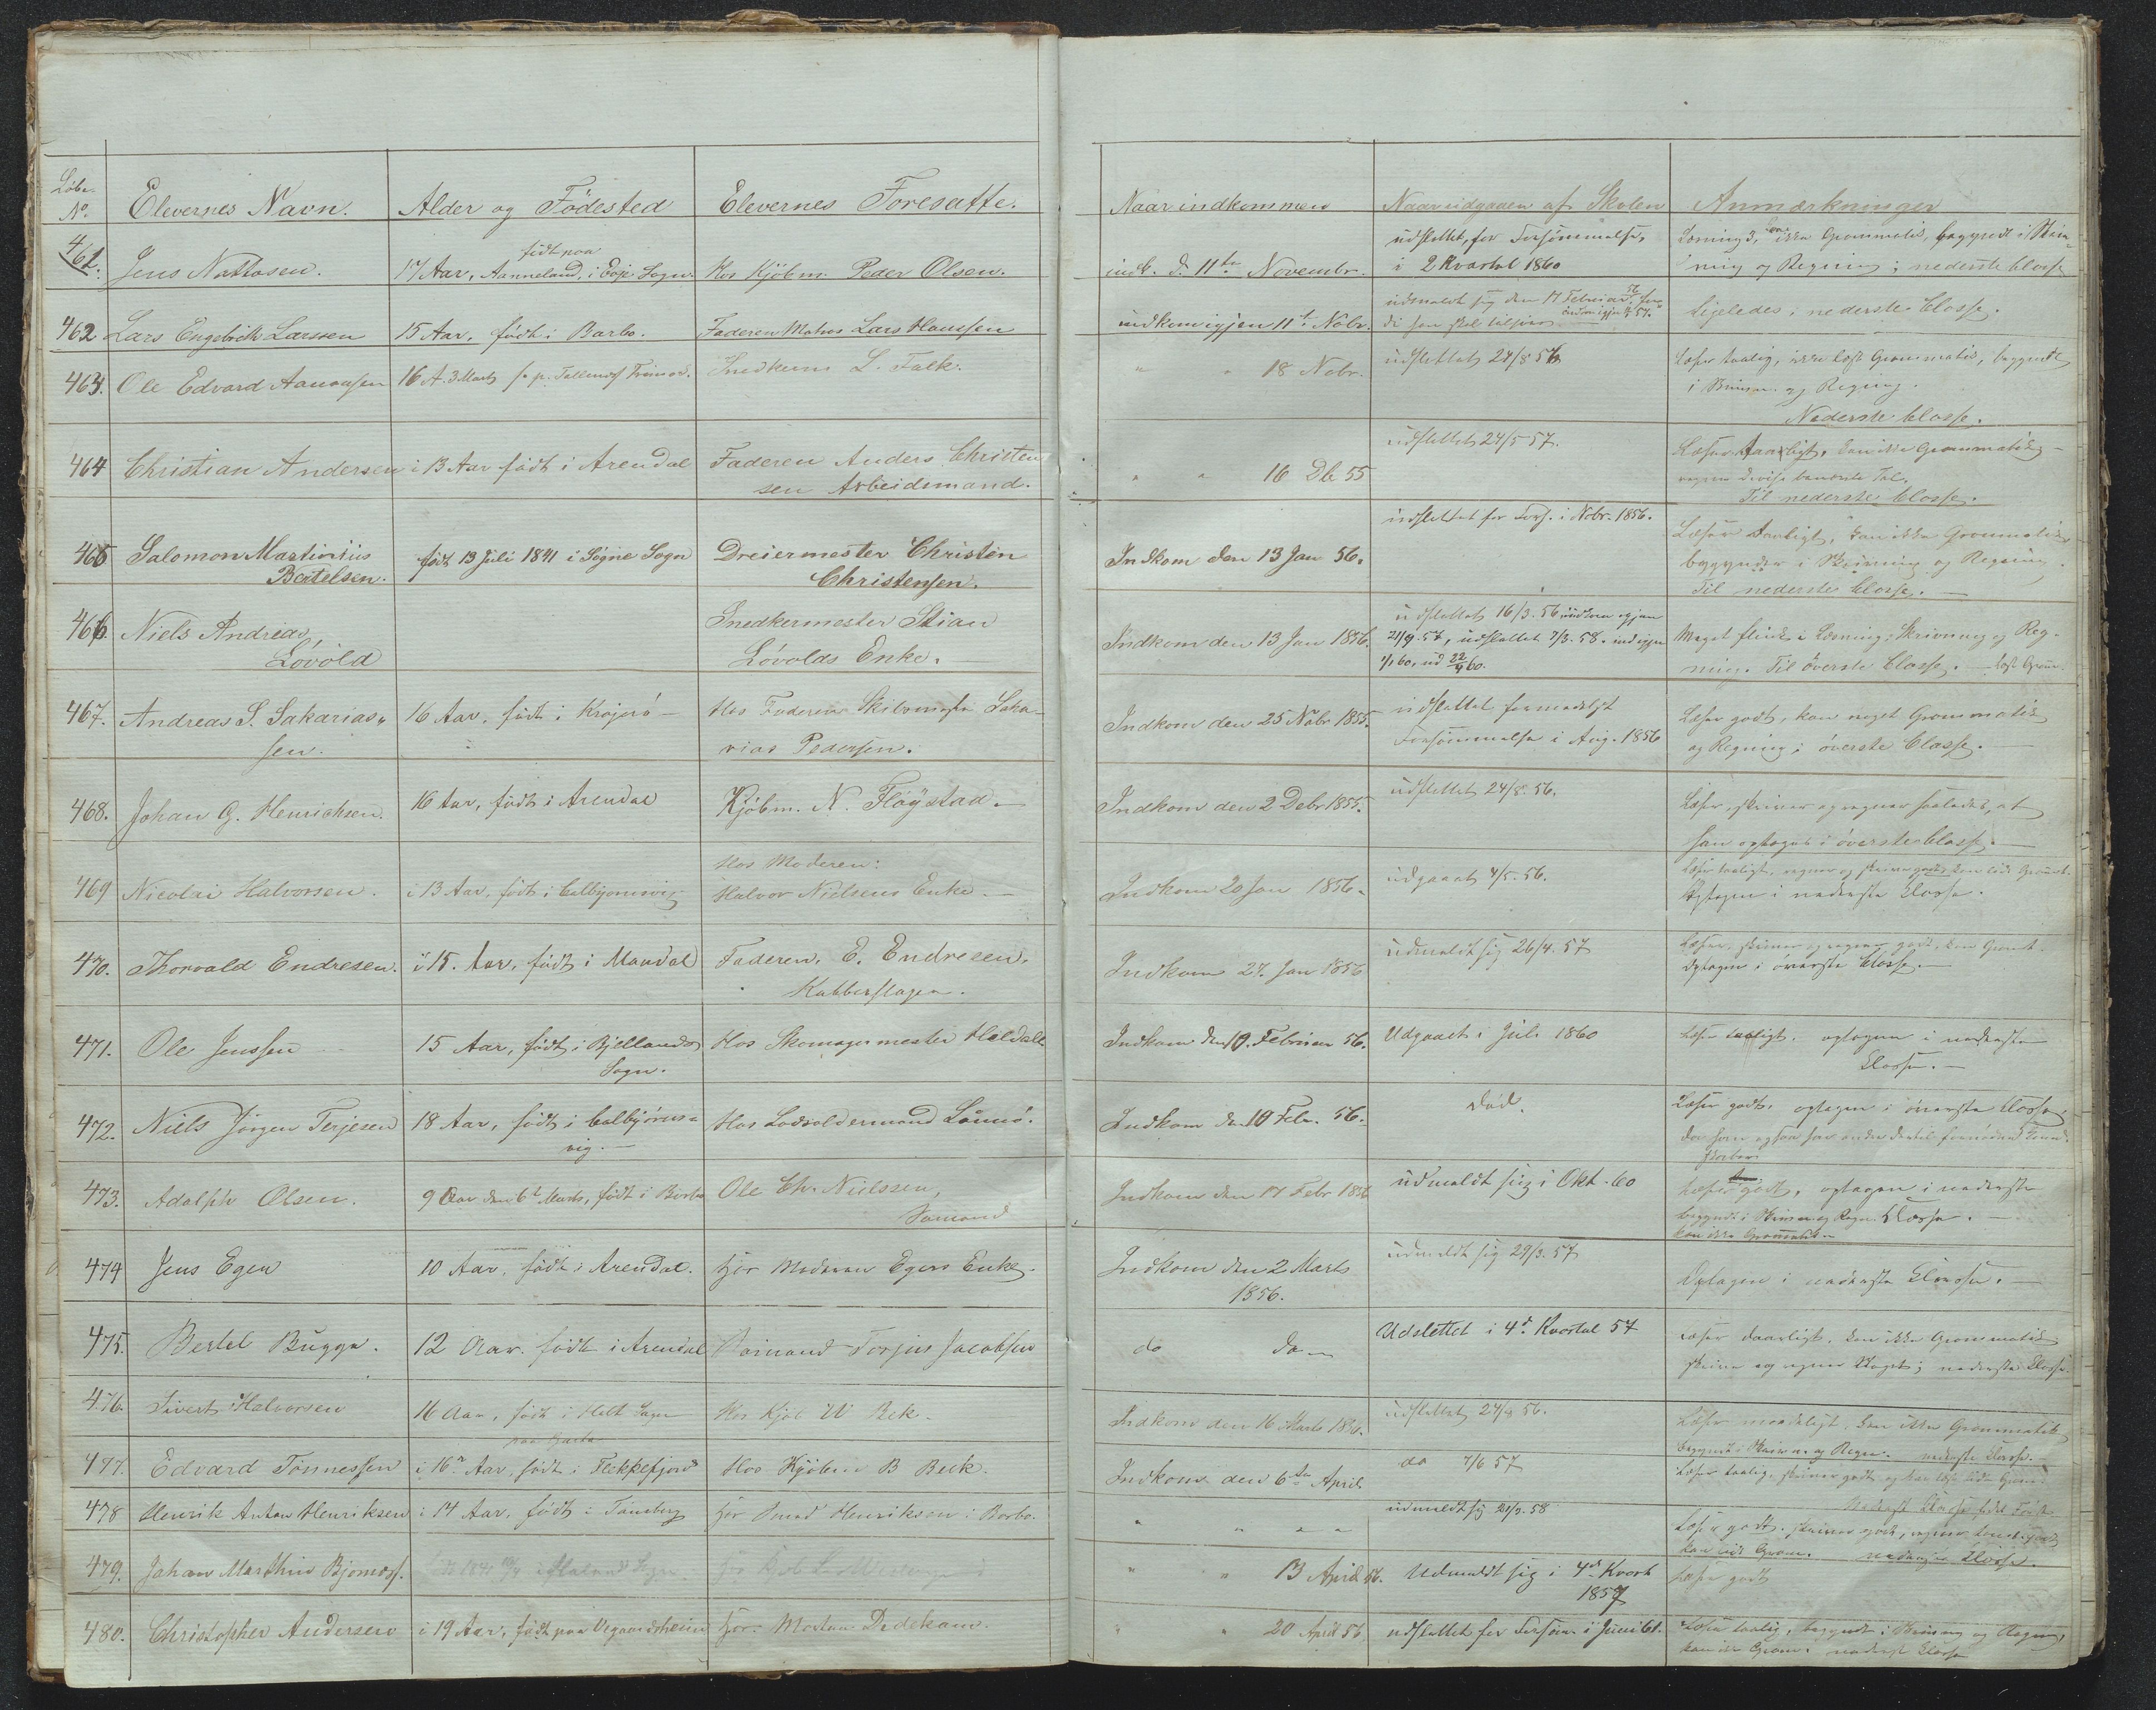 Løbe
No.
Elevernes Navn.
Alder og Födested
Elevernes Foresatte.
Naar indkommen
Naar udgaaen af Skolen
Anmærkninger
461.
Jens Nattosen.
födt paa
17 Aar, Aanneland, i Sogn.
Hos Kjöbm. Peder Olsen.
indk. d. 11te Novembr.
udslettet, for Forsömmelse,
i 2 Kvartal 1860
Læsning 3, ikke Grammatik, begyndt i Skriv-
ning og Regning; nederste Classe
462
Lars Engebrikt Larssen
15 Aar, födt i Barbo.
Faderen Matros Lars Hanssen
indkom igjen 11te Nobr.
udmeldt sig den 17 Februar 56
Ligeledes, nederste Classe.
463.
Ole Edvard Aanonsen
16 A. 3 Marts
Snedkerm L. Falk.
" " 18 Nobr.
udslettet 24/8 56
Læser taalig, ikke læst Grammatik, begyndt
i Skrivn. og Regning.
Nederste Classe.
464
Christian Andersen
i 13 Aar födt i Arendal
Faderen Anders Christen
sen Arbeidsmand.
" " 16 Db 55
udslettet 24/5 57.
Læser daarligt, kan ikke Grammatik
Til nederste Classe.
465
Salomon Martinius
Bertelsen.
födt 13 Juli 1841 i Sögne Sogn
Dreiermester Christen
Christensen.
Indkom den 13 Jan 56.
udslettet for Fors. i Nobr. 1856.
Læser daarligt, kan ikke Grammatik
begynder i Skrivning og Regning.
Til nederste Classe.
466.
Niels Andreas
Lövold
Snedkermester Stian
Lövolds Enke.
Indkom den 13 Jan 1856.
udslettet 16/3. 56 indkom igjen
21/9. 56, udslettet 7/3. 58. ind igjen
1/1 60, ud 22/4 60.
Meget flink i Læsning, Skrivning og Reg-
ning. Til överste Classe.
467.
Andreas S. Sakarias-
sen.
16 Aar, födt i Kragerö
Hos Faderen Saka-
rias Pedersen.
Indkom den 25 Nobr 1855.
udslettet formedelst
Forsömmelse i Aug. 1856
Læser godt, kan noget Grammatik
og Regning; överste Classe.
468.
Johan G. Henrichsen.
16 Aar, födt i Arendal
Kjöbm. N. Flöystad.
Indkom den 2 Debr 1855.
udslettet 24/8. 56.
Læser, skriver og regner saaledes, at
han optages i överste Classe.
469
Nicolai Halvorsen.
i 13 Aar, födt i Colbjörnsvig
Hos Moderen:
Halvor Nielsens Enke.
Indkom 20 Jan 1856.
udgaaet 4/5. 56.
Læser taaligt, regner og skriver godt, kan lidt Gramt.
Optagen i nederste Classe.
470.
Thorvald Endresen.
i 15. Aar, födt i Mandal
Faderen, E. Endresen,
Kobberslager.
Indkom 27. Jan 1856
udmeldt sig 26/4. 57
Læser, skriver og regner godt, kan Gramt.
Optagen i överste Classe.
471.
Ole Jenssen
15 Aar, födt i Bjellands
Sogn.
Hos Skomagermester Heldal
Indkom den 10. Februar 56.
Udgaaet i Juli 1860
Læser taaligt. optagen i nederste
Classe.
472.
Niels Jörgen Terjesen
18 Aar, födt i Colbjörns-
vig.
Hos Lodsoldermand Lömö.
Indkom den 10 Febr. 56.
död.
Læser godt. optagen i överste Classe,
473.
Adolph Olsen.
9 Aar den 6te Marts, födt i Barbo
Ole Chr. Nielssen,
Sömand
Indkom den 17 Febr 1856
udmeldt sig i Okt. 60
Læser godt, optagen i nederste
begyndt i Skrivn. og Regn. Classe.
kan ikke Grammatik.
474
Jens Egen
10 Aar, födt i Arendal.
hjos Moderen Egens Enke.
Indkom den 2 Marts
1856.
udmeldt sig 29/3. 57
Optagen i nederste Classe.
475.
Bertel Bugge.
12 Aar. födt i Arendal
Sömand Torjus Jacobsen
do do
Udslettet i 4de Kvartal 57
Læser daarligt, kan ikke Grammatik
skriver og regner Noget; nederste Classe.
476.
Sivert Halvorsen
16 Aar, födt i Holt Sogn
Hos Kjöb W Bek.
Indkom den 16 Marts 1856.
udslettet 24/8 56.
Læser maadeligt. kan ikke Grammatik
begyndt i Skrivn. og Regn. nederste Classe.
477.
Edvard Tönnessen
i 16de Aar, födt i Flekkefjord
Hos Kjöbm B Beck.
Indkom den 6te April
do 7/6 57
Læser taalig. skriver godt og har læst lidt Gram.
478
Henrik Anton Henriksen
i 14 Aar, födt i Tönsberg
hjos Smed Henriksen i Barbo.
" " " "
udmeldt sig 21/3. 58
Læser godt. skriver godt, regner
kan lidt Gram. nederste Classe.
479.
Johan Marthin Bjornoss.
" " 13 April 56.
Udmeldt sig i 4de Kvart
1857
Læser godt
480.
Christopher Andersen
i 19 Aar, födt paa Vegaardsheien
hjos Morten Dedekam.
" " 20 April 56
udslettet for Forsöm. i Juni 61.
Læser taalig, begyndt i Skrivning og Regning,
kan ikke Gram. nederste Classe